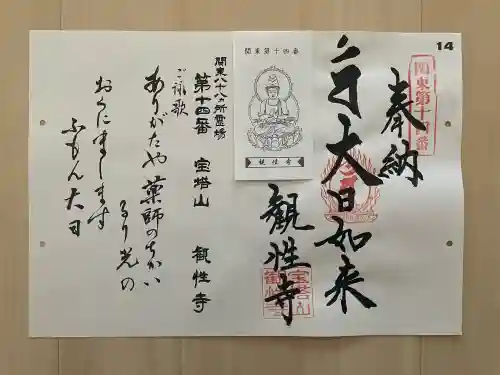 14
奉納
関東第十四番
大日如来
観性寺
宝塔山
観性寺
関東第十四番
観性寺
関東八十八ヵ所霊場
第十四番 宝塔山 観性寺
ご詠歌
ありがたや 薬師のちかい
るり光の
おくにまします
ふもん大日